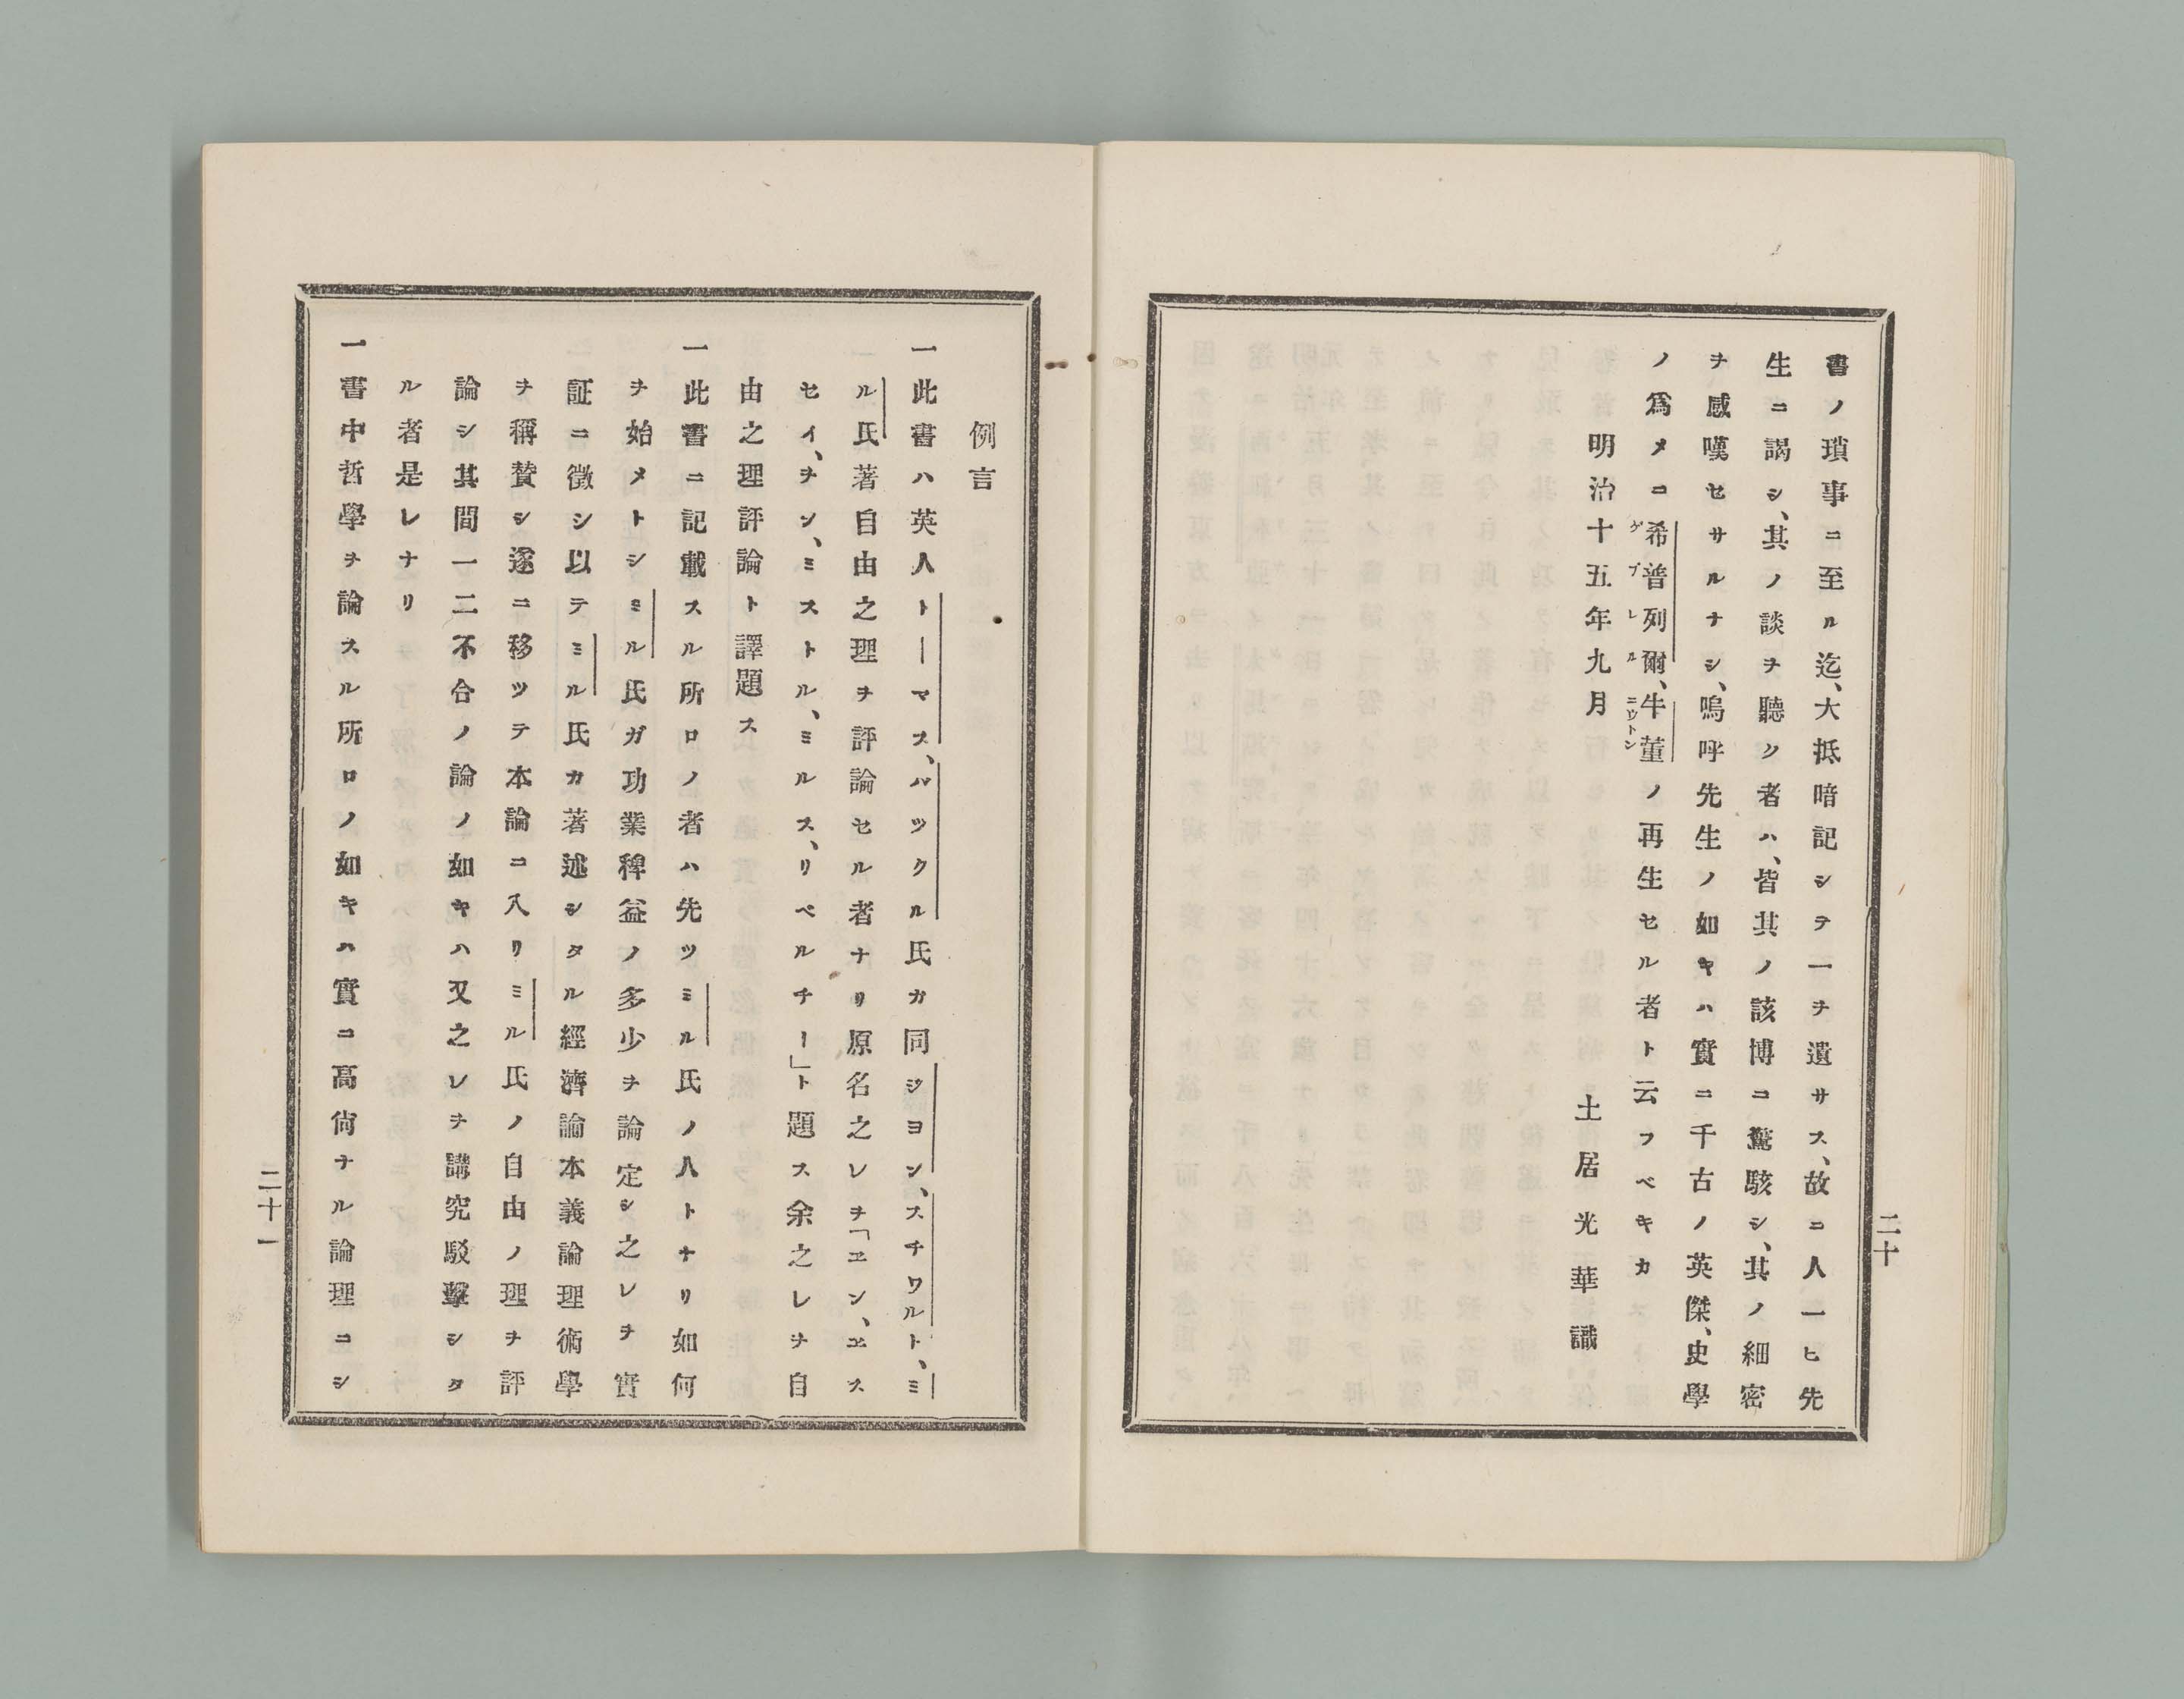 書ノ瑣事ニ至ル迄、大抵暗記シテ一ヲ遺サス、故ニ人一ヒ先
生ニ謁シ、其ノ談ヲ聽ク者ハ、皆其ノ該博ニ驚駭シ、其ノ細密
ヲ感嘆セサルナシ、嗚呼先生ノ如キハ實ニ千古ノ英傑、史學
ノ爲メニ希普列爾、牛董ノ再生セル者ト云フベキカ
ゲプレル
ニウトン
明治十五年九月
土居光華識
二十
例言
一此書ハ英人トーマス、バツクル氏カ同ジヨン、スチワルト、ミ
ル氏著自由之理ヲ評論セル者ナリ原名之レヲ「ヱン、ヱス
セイ、ヲン、ミストル、ミルス、リベルチー」ト題ス余之レヲ自
由之理評論ト譯題ス
一此書ニ記載スル所ロノ者ハ先ツミル氏ノ人トナリ如何
ヲ始メトシミル氏ガ功業稗益ノ多少ヲ論定シ之レヲ實
証ニ徵シ以テミル氏カ著述シタル經濟論本義論理術學
ヲ稱賛シ遂ニ移ツテ本論ニ入リミル氏ノ自由ノ理ヲ評
論シ其間一二不合ノ論ノ如キハ又之レヲ講究駁擊シタ
ル者是レナリ
一書中哲學ヲ論スル所ロノ如キハ實ニ高尙ナル論理ニシ
二十一